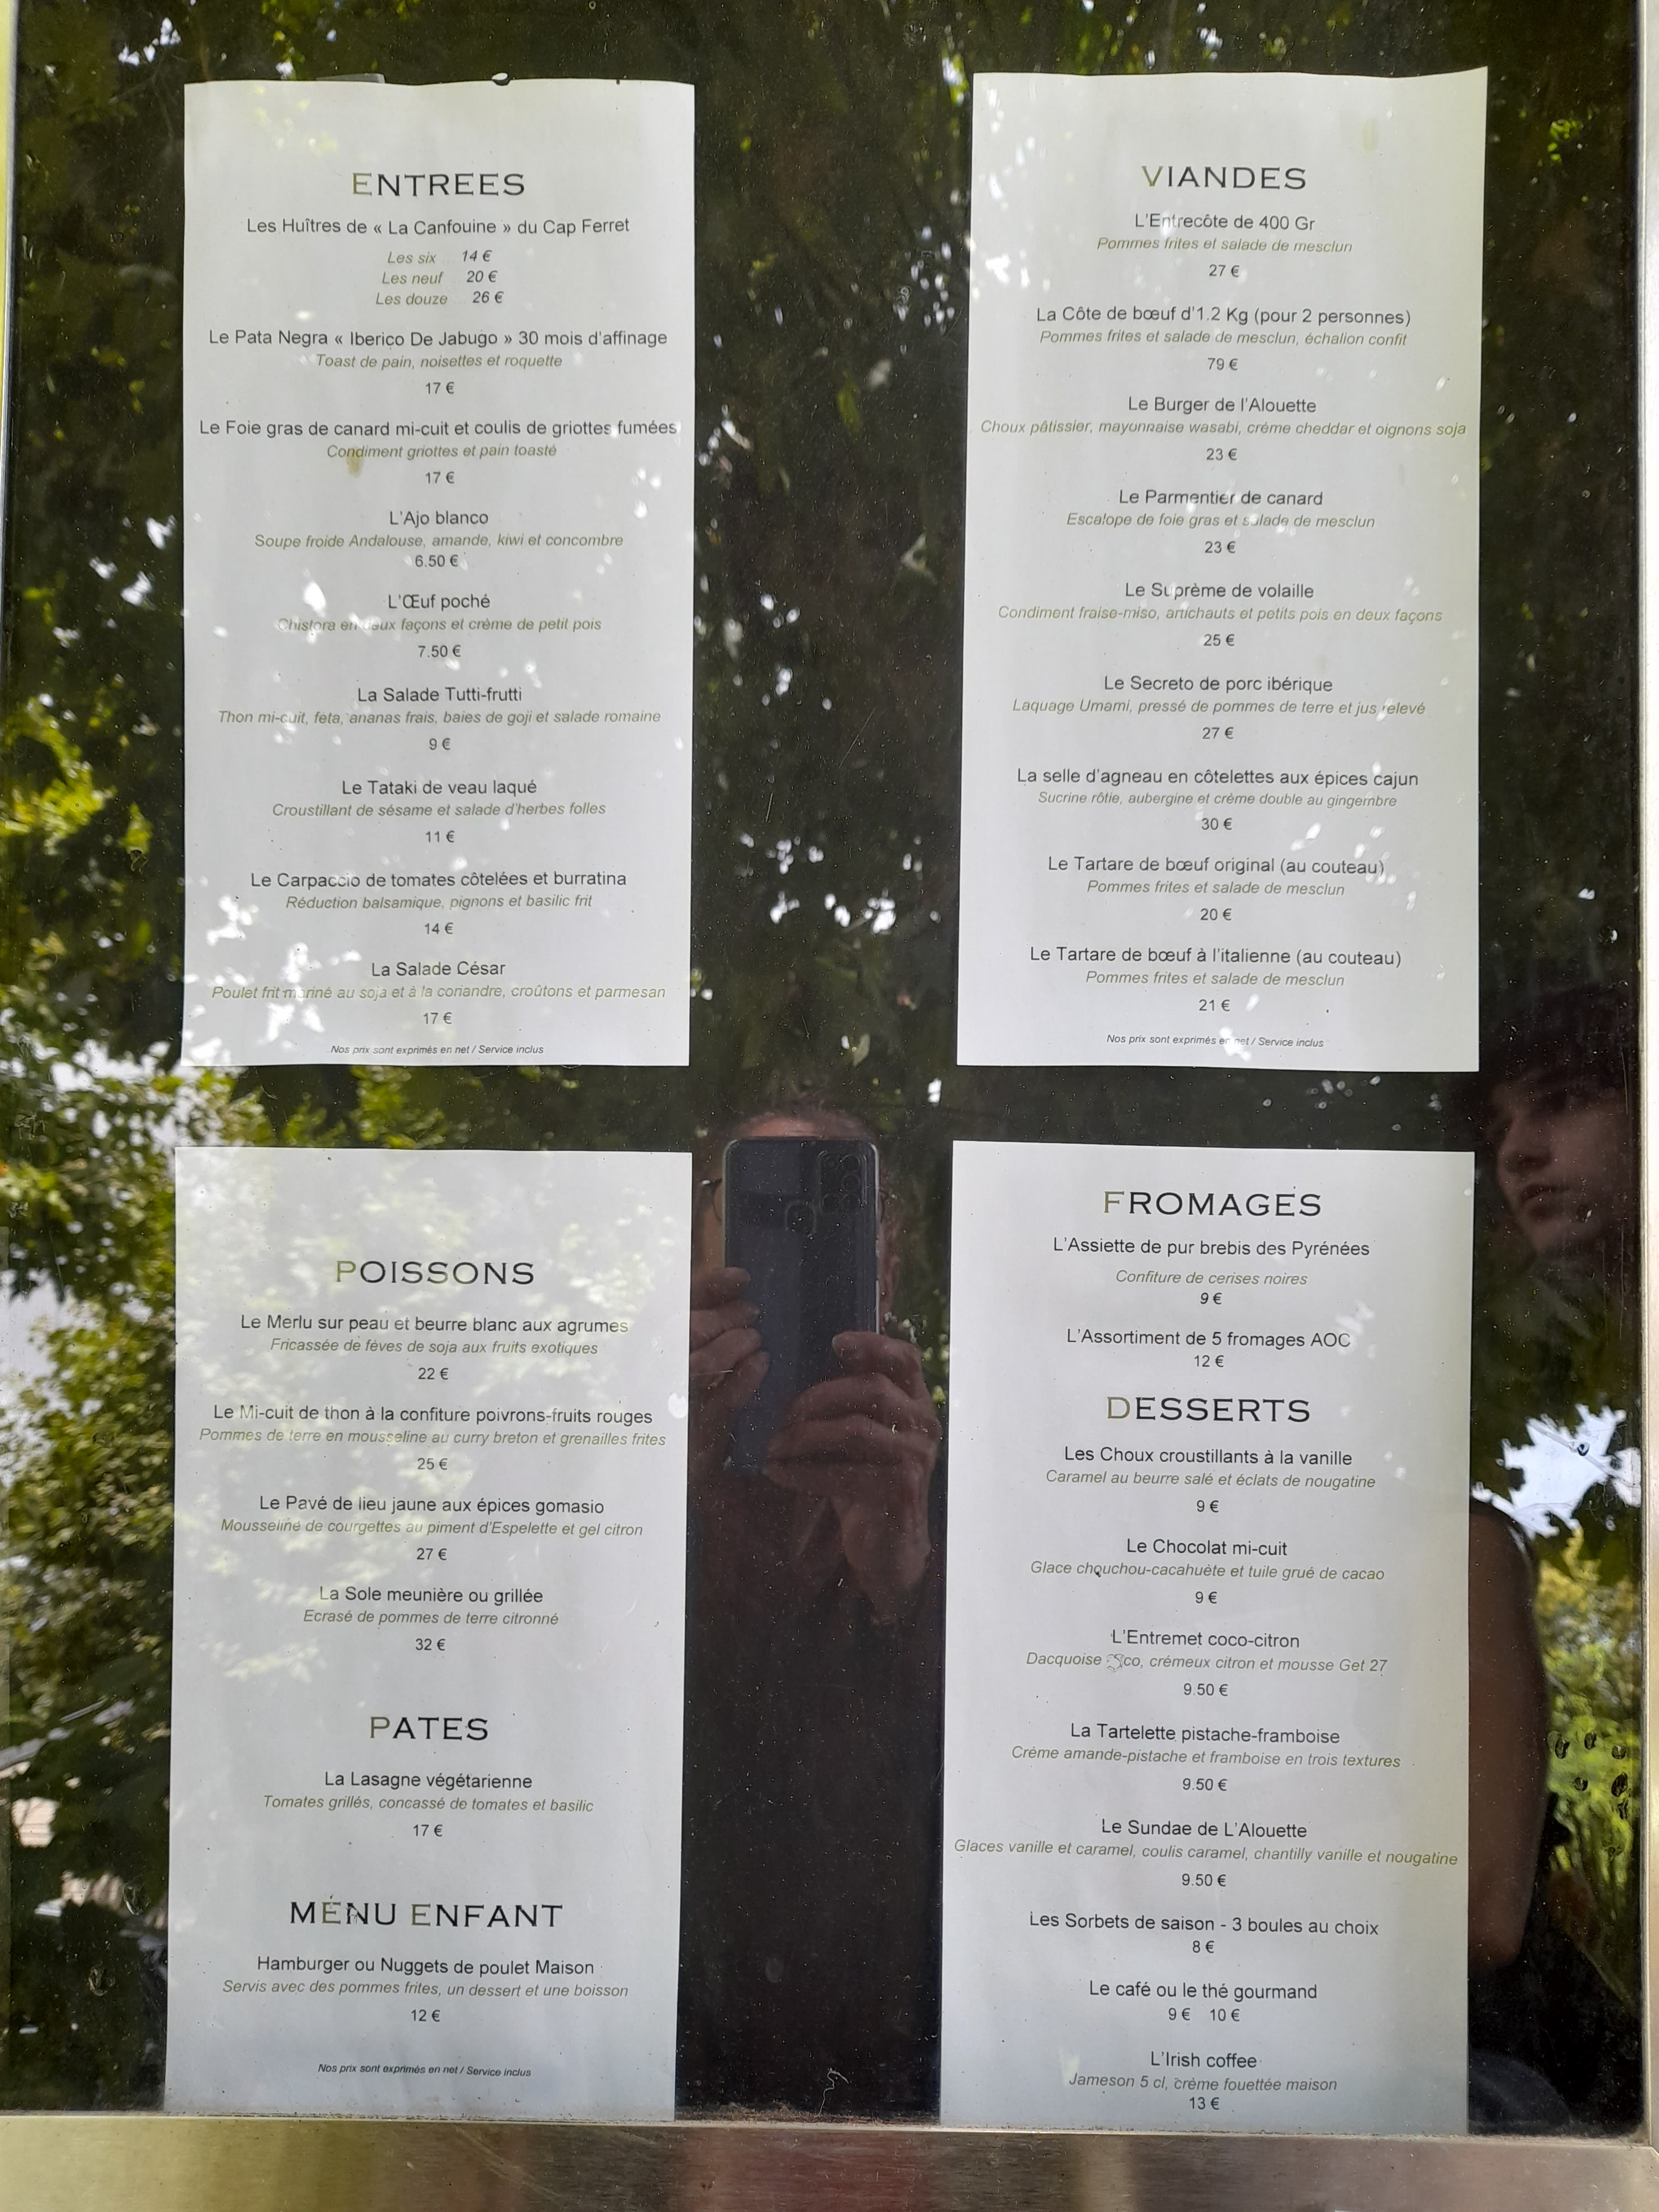 ENTREES
Les Huîtres de « La Canfouine » du Cap Ferret
Les six 14 €
Les neuf 20 €
Les douze 26 €
Le Pata Negra « Iberico De Jabugo » 30 mois d'affinage
Toast de pain, noisettes et roquette
17 €
Le Foie gras de canard mi-cuit et coulis de griottes fumées
Condiment griottes et pain toasté
17 €
L'Ajo blanco
Soupe froide Andalouse, amande, kiwi et concombre
6.50 €
L'Œuf poché
Chistora en deux façons et crème de petit pois
7.50 €
La Salade Tutti-frutti
Thon mi-cuit, feta, ananas frais, baies de goji et salade romaine
9 €
Le Tataki de veau laqué
Croustillant de sésame et salade d'herbes folles
11 €
Le Carpaccio de tomates côtelées et burratina
Réduction balsamique, pignons et basilic frit
14 €
La Salade César
Poulet frit mariné au soja et à la coriandre, croûtons et parmesan
17 €
Nos prix sont exprimés en net / Service inclus
VIANDES
L'Entrecôte de 400 Gr
Pommes frites et salade de mesclun
27 €
La Côte de bœuf d'1.2 Kg (pour 2 personnes)
Pommes frites et salade de mesclun, échalion confit
79 €
Le Burger de l'Alouette
Choux pâtissier, mayonnaise wasabi, crème cheddar et oignons soja
23 €
Le Parmentier de canard
Escalope de foie gras et salade de mesclun
23 €
Le Suprême de volaille
Condiment fraise-miso, artichauts et petits pois en deux façons
25 €
Le Secreto de porc ibérique
Laquage Umami, pressé de pommes de terre et jus relevé
27 €
La selle d'agneau en côtelettes aux épices cajun
Sucrine rôtie, aubergine et crème double au gingembre
30 €
Le Tartare de bœuf original (au couteau)
Pommes frites et salade de mesclun
20 €
Le Tartare de bœuf à l'italienne (au couteau)
Pommes frites et salade de mesclun
21 €
Nos prix sont exprimés en net / Service inclus
POISSONS
Le Merlu sur peau et beurre blanc aux agrumes
Fricassée de fèves de soja aux fruits exotiques
22 €
Le Mi-cuit de thon à la confiture poivrons-fruits rouges
Pommes de terre en mousseline au curry breton et grenailles frites
25 €
Le Pavé de lieu jaune aux épices gomasio
Mousseline de courgettes au piment d'Espelette et gel citron
27 €
La Sole meunière ou grillée
Ecrasé de pommes de terre citronné
32 €
PATES
La Lasagne végétarienne
Tomates grillés, concassé de tomates et basilic
17 €
MENU ENFANT
Hamburger ou Nuggets de poulet Maison
Servis avec des pommes frites, un dessert et une boisson
12 €
Nos prix sont exprimés en net / Service inclus
FROMAGES
L'Assiette de pur brebis des Pyrénées
Confiture de cerises noires
9 €
L'Assortiment de 5 fromages AOC
12 €
DESSERTS
Les Choux croustillants à la vanille
Caramel au beurre salé et éclats de nougatine
9 €
Le Chocolat mi-cuit
Glace chouchou-cacahuète et tuile grué de cacao
9 €
L'Entremet coco-citron
Dacquoise coco, crémeux citron et mousse Get 27
9.50 €
La Tartelette pistache-framboise
Crème amande-pistache et framboise en trois textures
9.50 €
Le Sundae de L'Alouette
Glaces vanille et caramel, coulis caramel, chantilly vanille et nougatine
9.50 €
Les Sorbets de saison - 3 boules au choix
8 €
Le café ou le thé gourmand
9 € 10 €
L'Irish coffee
Jameson 5 cl, crème fouettée maison
13 €